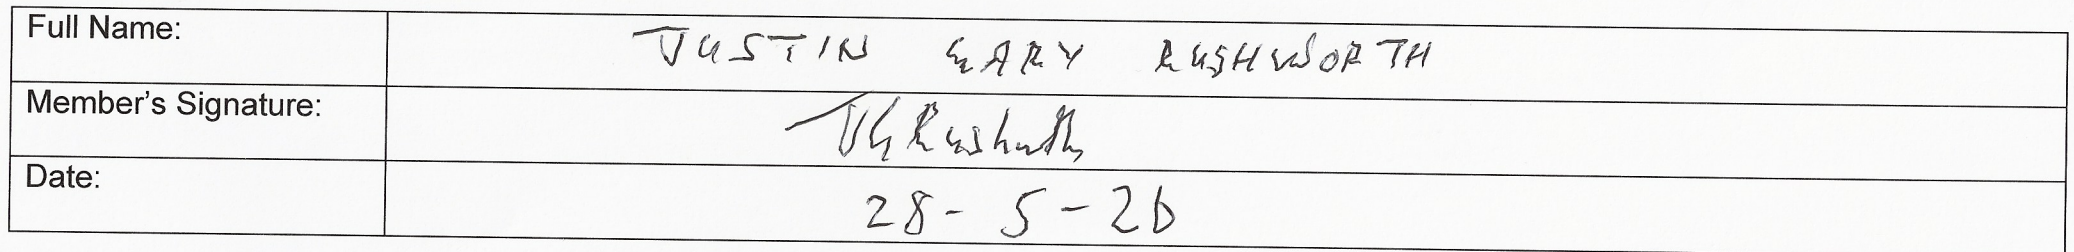 Full Name: JUSTIN GARY RUSHWORTH
Member's Signature: JG Rushwth
Date: 28-5-26